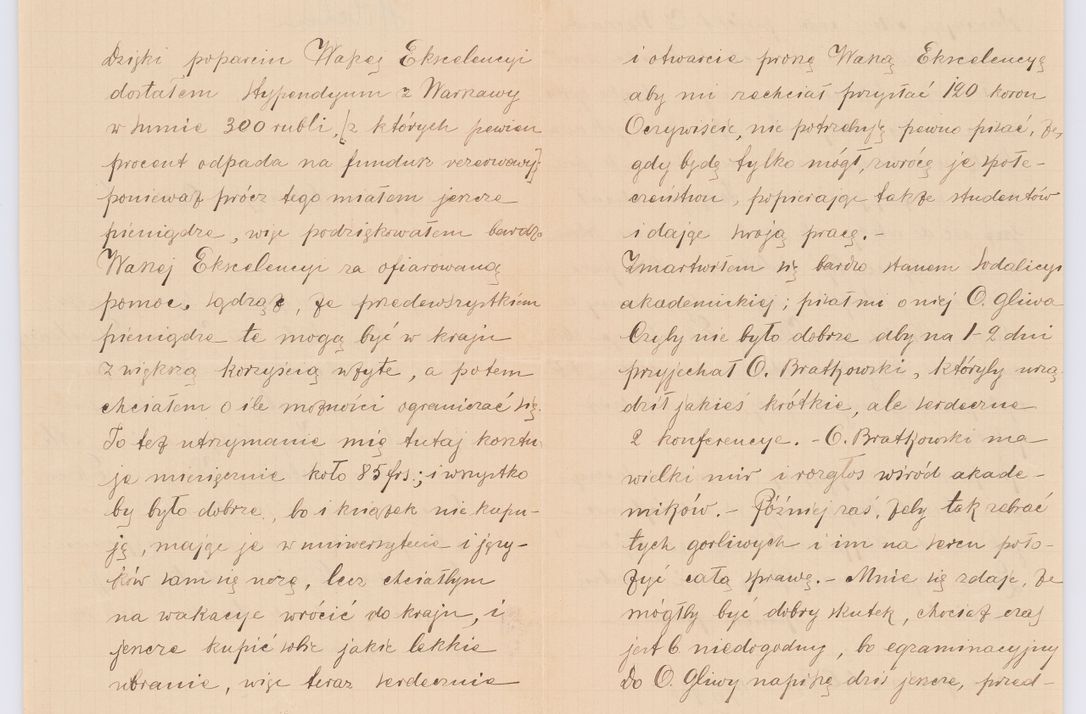 Dzięki poparciu Waszej Ekscelencyi
dostałem stypendyum z Warszawy
w sumie 300 rubli, [z których pewien
procent odpada na fundusz rezerwowy];
ponieważ prócz tego miałem jeszcze
pieniądze, więc podziękowałem bardzo
Waszej Ekscelencyi za ofiarowaną
pomoc, sądząc, że przedewszystkiem
pieniądze te mogą być w kraju
z większą korzyścią użyte, a potem
chciałem o ile możności ograniczać się.
To też utrzymanie mię tutaj kosztu
je miesięcznie koło 85 frs.; i wszystko
by było dobrze, bo i książek nie kupu-
ję, mając je w uniwersytecie i języ-
ków sam się uczę, lecz chciałbym
na wakacye wrócić do kraju, i
jeszcze kupić sobie jakie lekkie
ubranie, więc teraz serdecznie
i otwarcie proszę Waszą Ekscelencyę
aby mi zechciał przysłać 120 koron
Oczywiście, nie potrzebuję pewno pisać, że,
gdy będę tylko mógł, zwrócę je społe-
czeństwu, popierając także studentów
i dając swoją pracę. -
Zmartwiłem się bardzo stanem Sodalicyi
akademickiej; pisał mi o niej O. Gliwa
Czyby nie było dobrze aby na 1-2 dni
przyjechał O. Bratkowski, któryby urzą-
dził jakieś krótkie, ale serdeczne
2 konferencye. - O. Bratkowski ma
wielki mir i rozgłos wśród akade-
mików. - Później zaś, żeby tak zebrać
tych gorliwych i im na sercu poło-
żyć całą sprawę. - Mnie się zdaje, że
mógłby być dobry skutek, chociaż czas
jest b niedogodny, bo egzaminacyjny
Do O. Gliwy napiszę dziś jeszcze, przed-